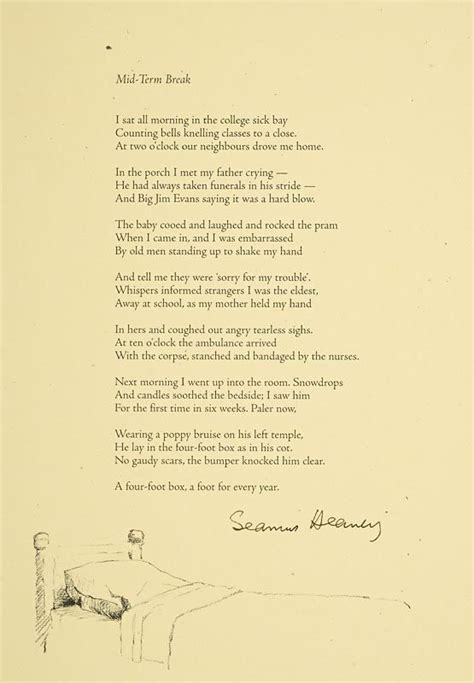 Mid-Term Break
I sat all morning in the college sick bay
Counting bells knelling classes to a close.
At two o'clock our neighbours drove me home.
In the porch I met my father crying —
He had always taken funerals in his stride —
And Big Jim Evans saying it was a hard blow.
The baby cooed and laughed and rocked the pram
When I came in, and I was embarrassed
By old men standing up to shake my hand
And tell me they were 'sorry for my trouble'.
Whispers informed strangers I was the eldest,
Away at school, as my mother held my hand
In hers and coughed out angry tearless sighs.
At ten o'clock the ambulance arrived
With the corpse, stanched and bandaged by the nurses.
Next morning I went up into the room. Snowdrops
And candles soothed the bedside; I saw him
For the first time in six weeks. Paler now,
Wearing a poppy bruise on his left temple,
He lay in the four-foot box as in his cot.
No gaudy scars, the bumper knocked him clear.
A four-foot box, a foot for every year.
Seamus Heaney